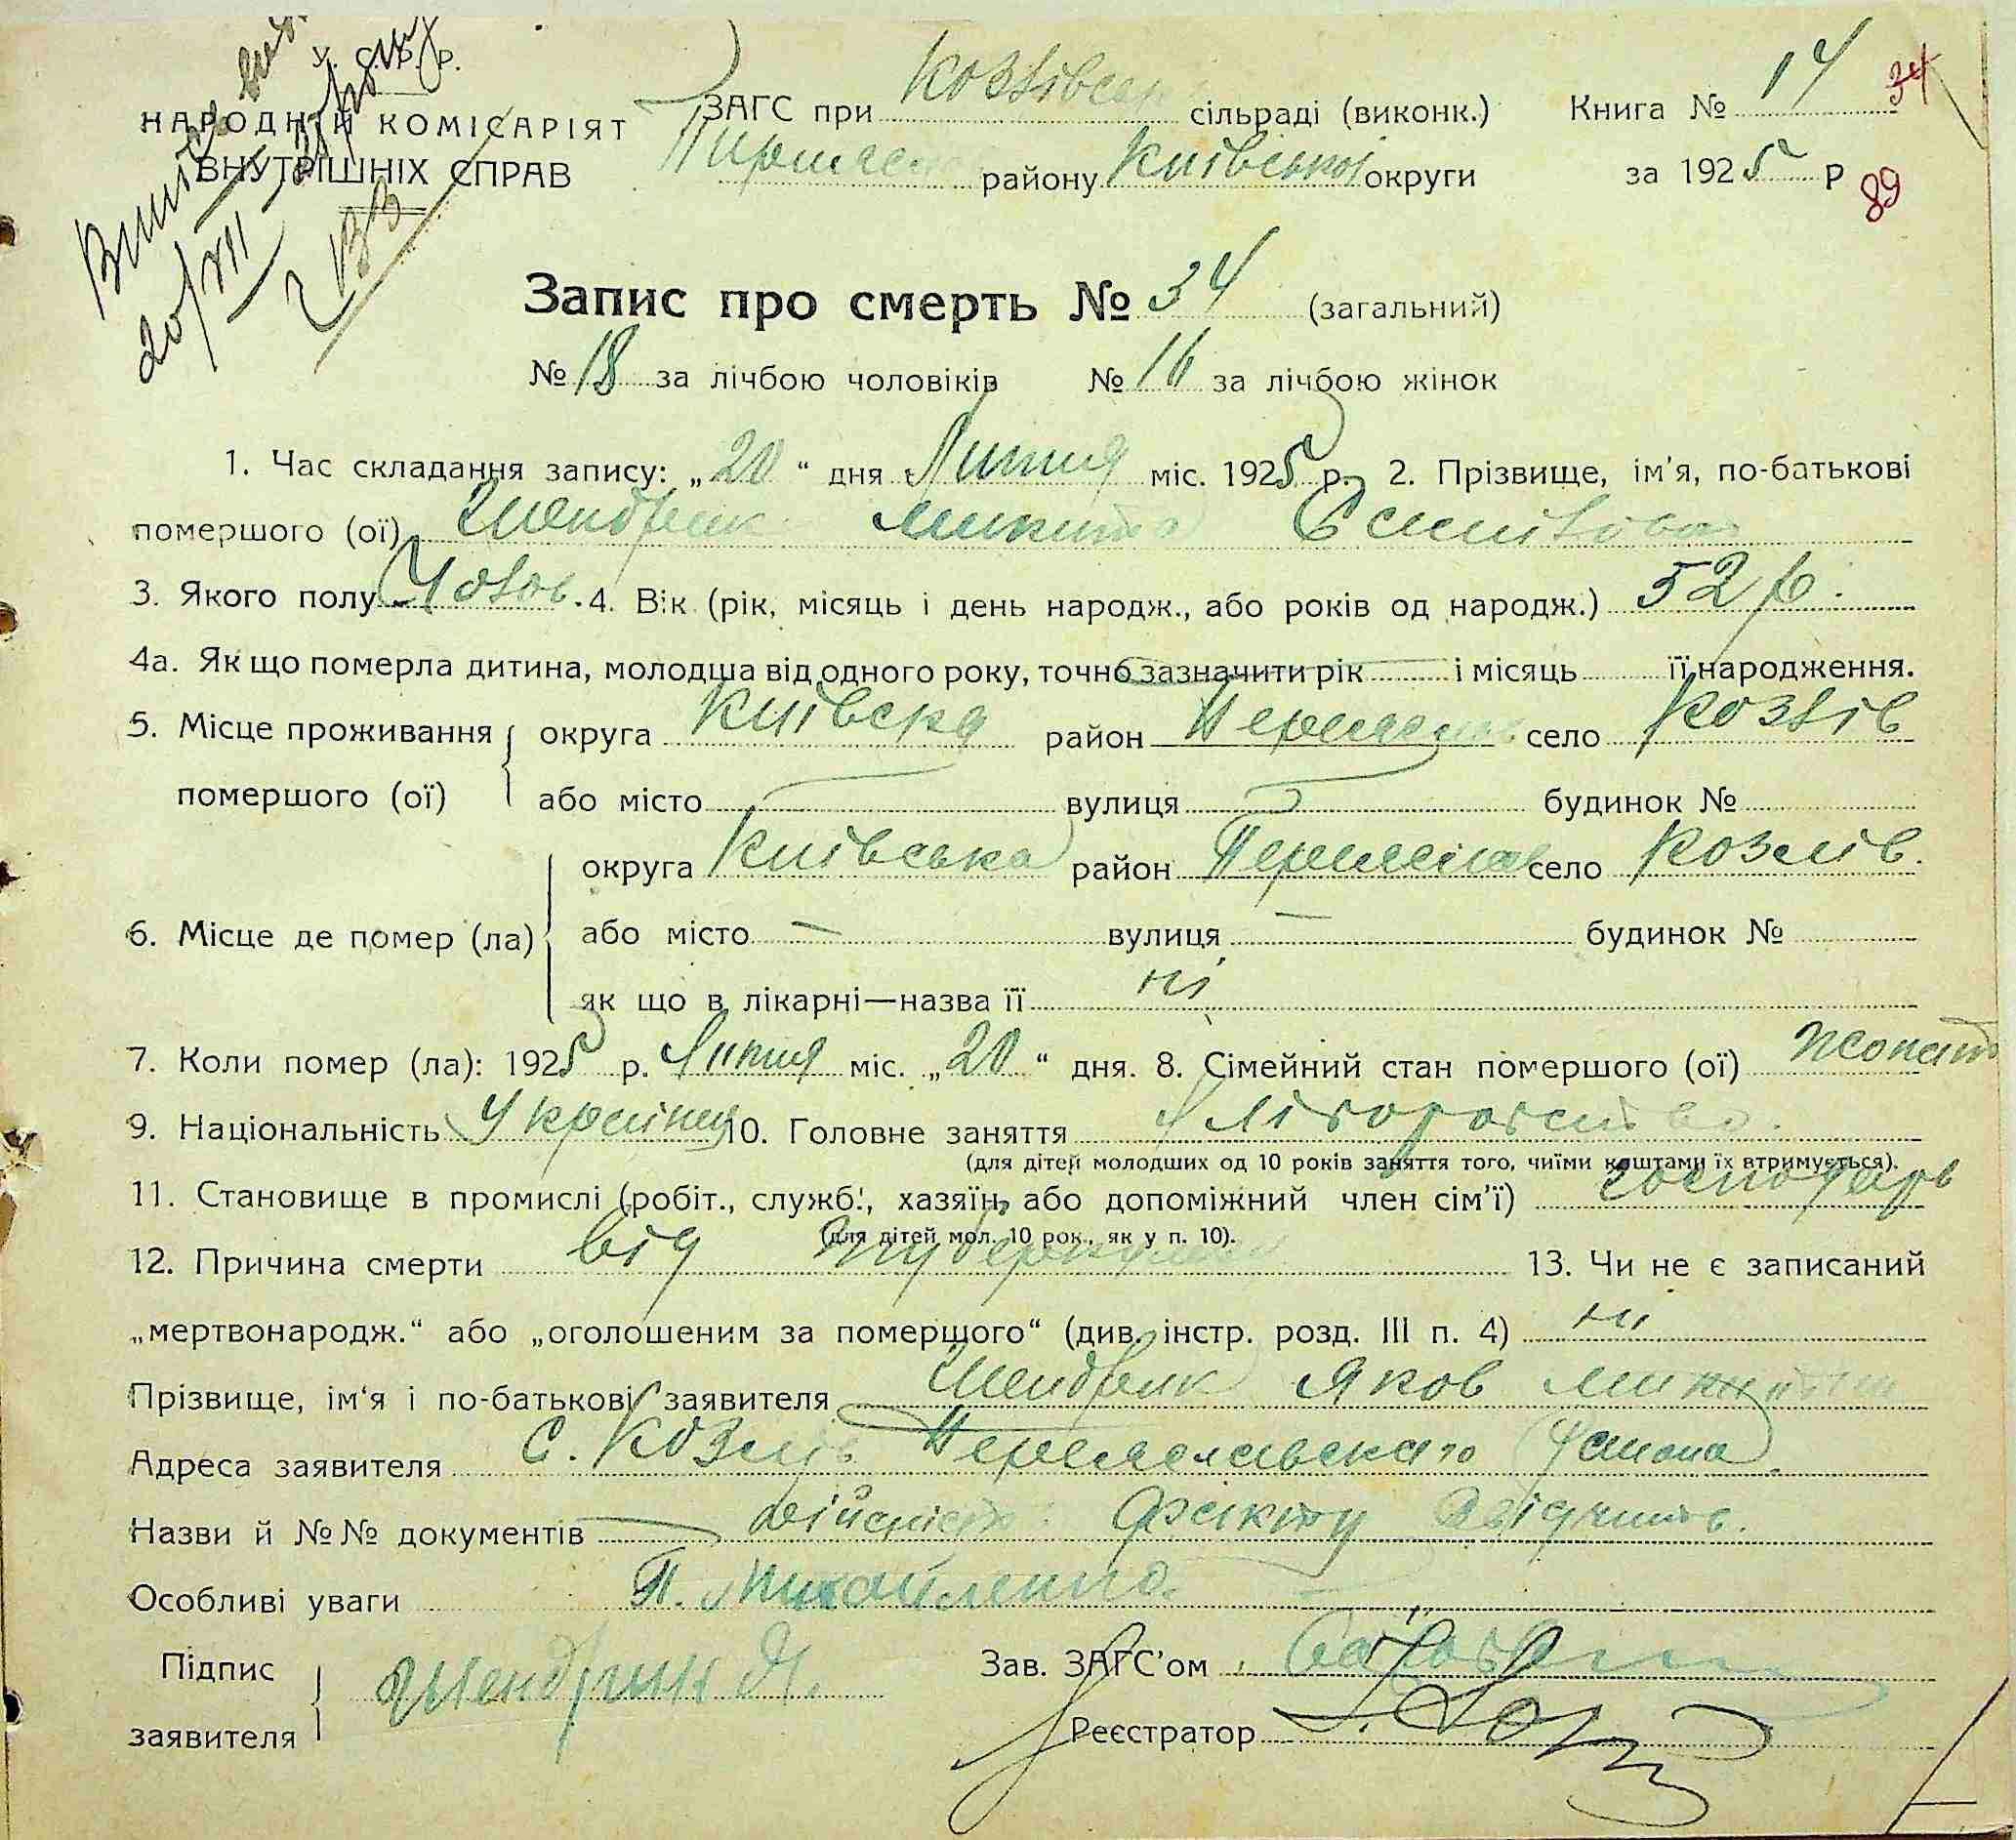 У. С. Р. Р.
НАРОДНІЙ КОМІСАРІЯТ
ВНУТРІШНІХ СПРАВ
20/XII
133
ЗАГС при Козлівськ сільраді (виконк.) Книга № 14 34
району Київської округи за 1925 р 89
Запис про смерть № 34 (загальний)
№ 18 за лічбою чоловіків № 16 за лічбою жінок
1. Час складання запису: „20“ дня Липня міс. 1925 р. 2. Прізвище, ім'я, по-батькові
помершого (ої) Шендрик Микита
3. Якого полу Чолов. 4. Вік (рік, місяць і день народж., або років од народж.) 52 р.
4а. Як що померла дитина, молодша від одного року, точно зазначити рік і місяць її народження.
5. Місце проживання округа Київська район Переяслав село Козлів
помершого (ої) або місто — вулиця — будинок №
округа Київська район Переяслав село Козлів.
6. Місце де помер (ла) або місто — вулиця — будинок №
як що в лікарні—назва її ні
7. Коли помер (ла): 1925 р. Липня міс. „20“ дня. 8. Сімейний стан помершого (ої) жонат
9. Національність Українец 10. Головне заняття хліборобство.
(для дітей молодших од 10 років заняття того, чиїми коштами їх втримується).
11. Становище в промислі (робіт., служб., хазяїн, або допоміжний член сім'ї) господарь
(для дітей мол. 10 рок., як у п. 10).
12. Причина смерти від туберкульоз 13. Чи не є записаний
„мертвонародж.“ або „оголошеним за померщого“ (див. інстр. розд. III п. 4) ні
Прізвище, ім'я і по-батькові заявителя Шендрик Яков Микитин
Адреса заявителя с. Козлів Переяславського району
Назви й №№ документів — дійсність факту свідчить.
Особливі уваги П. Михайленко.
Підпис
заявителя Шендрик Я.
Зав. ЗАГС'ом
Реєстратор